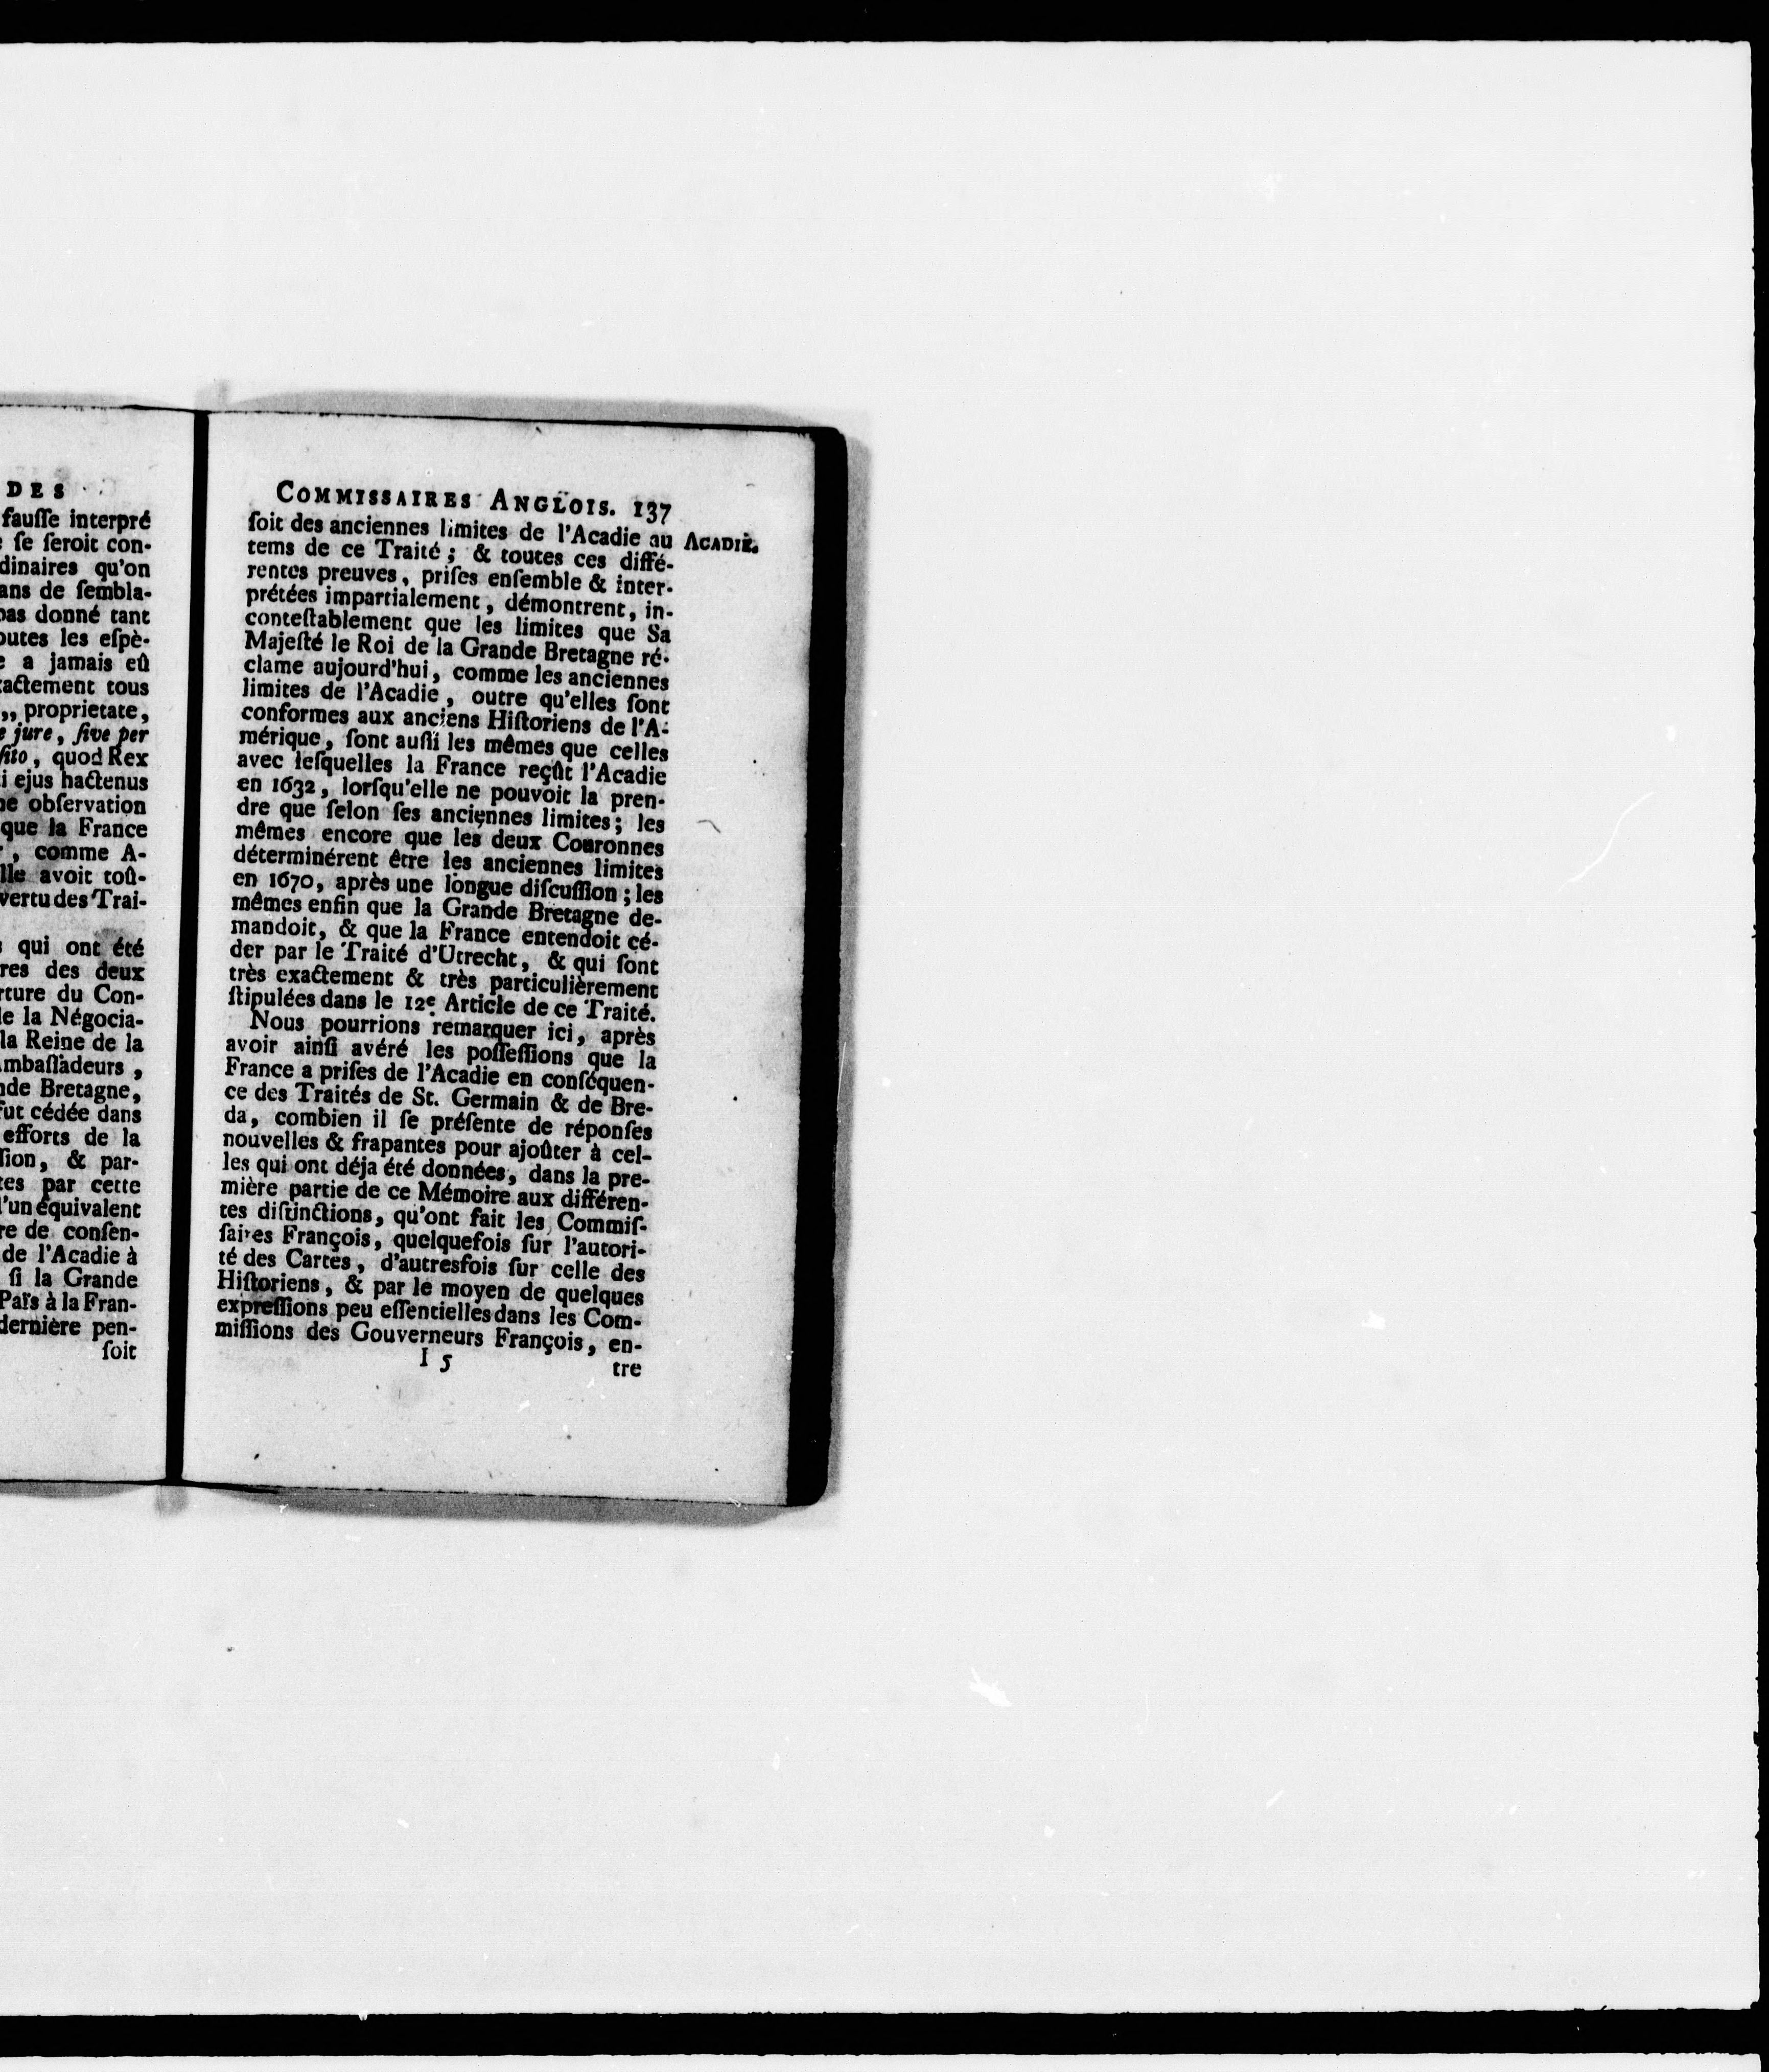 DES
fauſſe interpré
ſe ſeroit con-
dinaires qu'on
ans de ſembla-
pas donné tant
outes les eſpè-
e a jamais eû
xactement tous
„ proprietate,
e jure, ſive per
ſito, quod Rex
i ejus hactenus
ne obſervation
que la France
, comme A-
lle avoit toû-
vertu des Trai-
s qui ont été
res des deux
rture du Con-
de la Négocia-
la Reine de la
Ambaſſadeurs,
nde Bretagne,
fut cédée dans
efforts de la
ſion, & par-
tes par cette
d'un équivalent
re de conſen-
de l'Acadie à
ſi la Grande
Païs à la Fran-
dernière pen-
ſoit
COMMISSAIRES ANGLOIS. 137
ſoit des anciennes limites de l'Acadie au ACADIE.
tems de ce Traité; & toutes ces diffé-
rentes preuves, priſes enſemble & inter-
prétées impartialement, démontrent, in-
conteſtablement que les limites que Sa
Majeſté le Roi de la Grande Bretagne ré-
clame aujourd'hui, comme les anciennes
limites de l'Acadie, outre qu'elles ſont
conformes aux anciens Hiſtoriens de l'A-
mérique, ſont auſſi les mêmes que celles
avec leſquelles la France reçût l'Acadie
en 1632, lorſqu'elle ne pouvoit la pren-
dre que ſelon ſes anciennes limites; les
mêmes encore que les deux Couronnes
déterminérent être les anciennes limites
en 1670, après une longue diſcuſſion; les
mêmes enfin que la Grande Bretagne de-
mandoit, & que la France entendoit cé-
der par le Traité d'Utrecht, & qui ſont
très exactement & très particulièrement
ſtipulées dans le 12e Article de ce Traité.
Nous pourrions remarquer ici, après
avoir ainſi avéré les poſſeſſions que la
France a priſes de l'Acadie en conſéquen-
ce des Traités de St. Germain & de Bre-
da, combien il ſe préſente de réponſes
nouvelles & frapantes pour ajoûter à cel-
les qui ont déja été données, dans la pre-
mière partie de ce Mémoire aux différen-
tes diſtinctions, qu'ont fait les Commiſ-
ſaires François, quelquefois ſur l'autori-
té des Cartes, d'autresfois ſur celle des
Hiſtoriens, & par le moyen de quelques
expreſſions peu eſſentielles dans les Com-
miſſions des Gouverneurs François, en-
I 5 tre